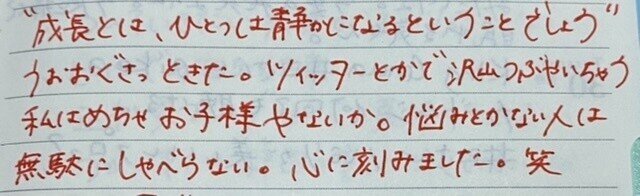 "成長とは、ひとつは静かになるということでしょう"
うおおぐさっときた。ツイッターとかで沢山つぶやいちゃう
私はめちゃお子様やないか。悩みとかない人は
無駄にしゃべらない。心に刻みました。笑